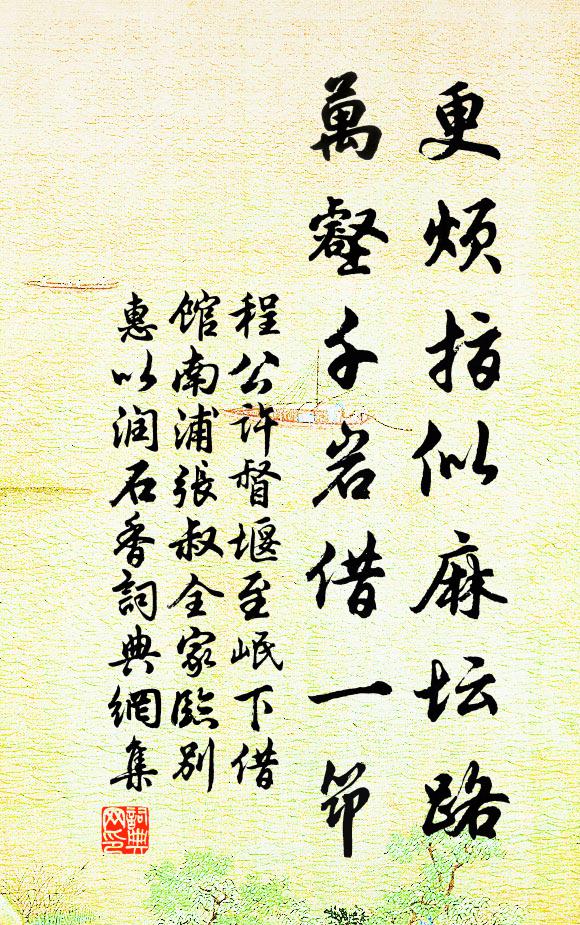 更烦指似麻坛路
萬壑千岩借一筇
程公许督堰至岷下借
馆南浦張叔全家臨别
惠以润石香詞典網集
詞典网印